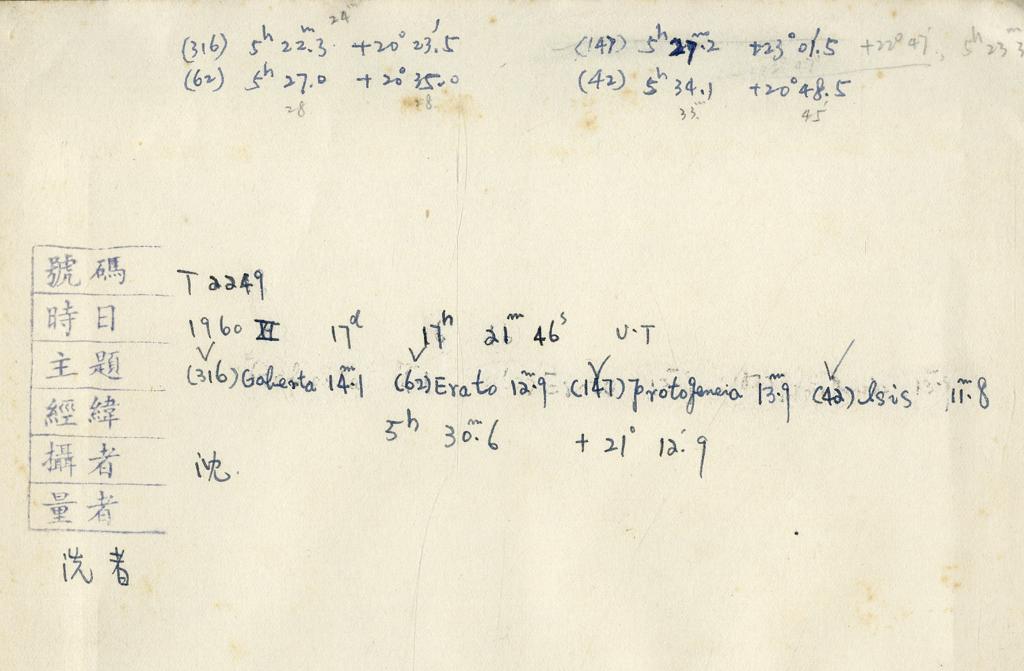 24
(316) 5ʰ 22ᵐ.3 +20° 23'.5 (147) 5ʰ 27ᵐ.2 +23° 01'.5 +22° 47', 5ʰ 23ᵐ
(62) 5ʰ 27.0 +20° 35.0 (42) 5ʰ 34.1 +20° 48.5
28 28 33 45
號碼 T 2249
時日 1960 XI 17ᵈ 17ʰ 21ᵐ 46ˢ U.T
主題 (316) Goberta 14ᵐ.1 (62) Erato 12ᵐ.9 (147) Protogeneia 13ᵐ.9 (42) Isis 11ᵐ.8
經緯 5ʰ 30ᵐ.6 + 21° 12'.9
攝者 沈.
量者
洗者